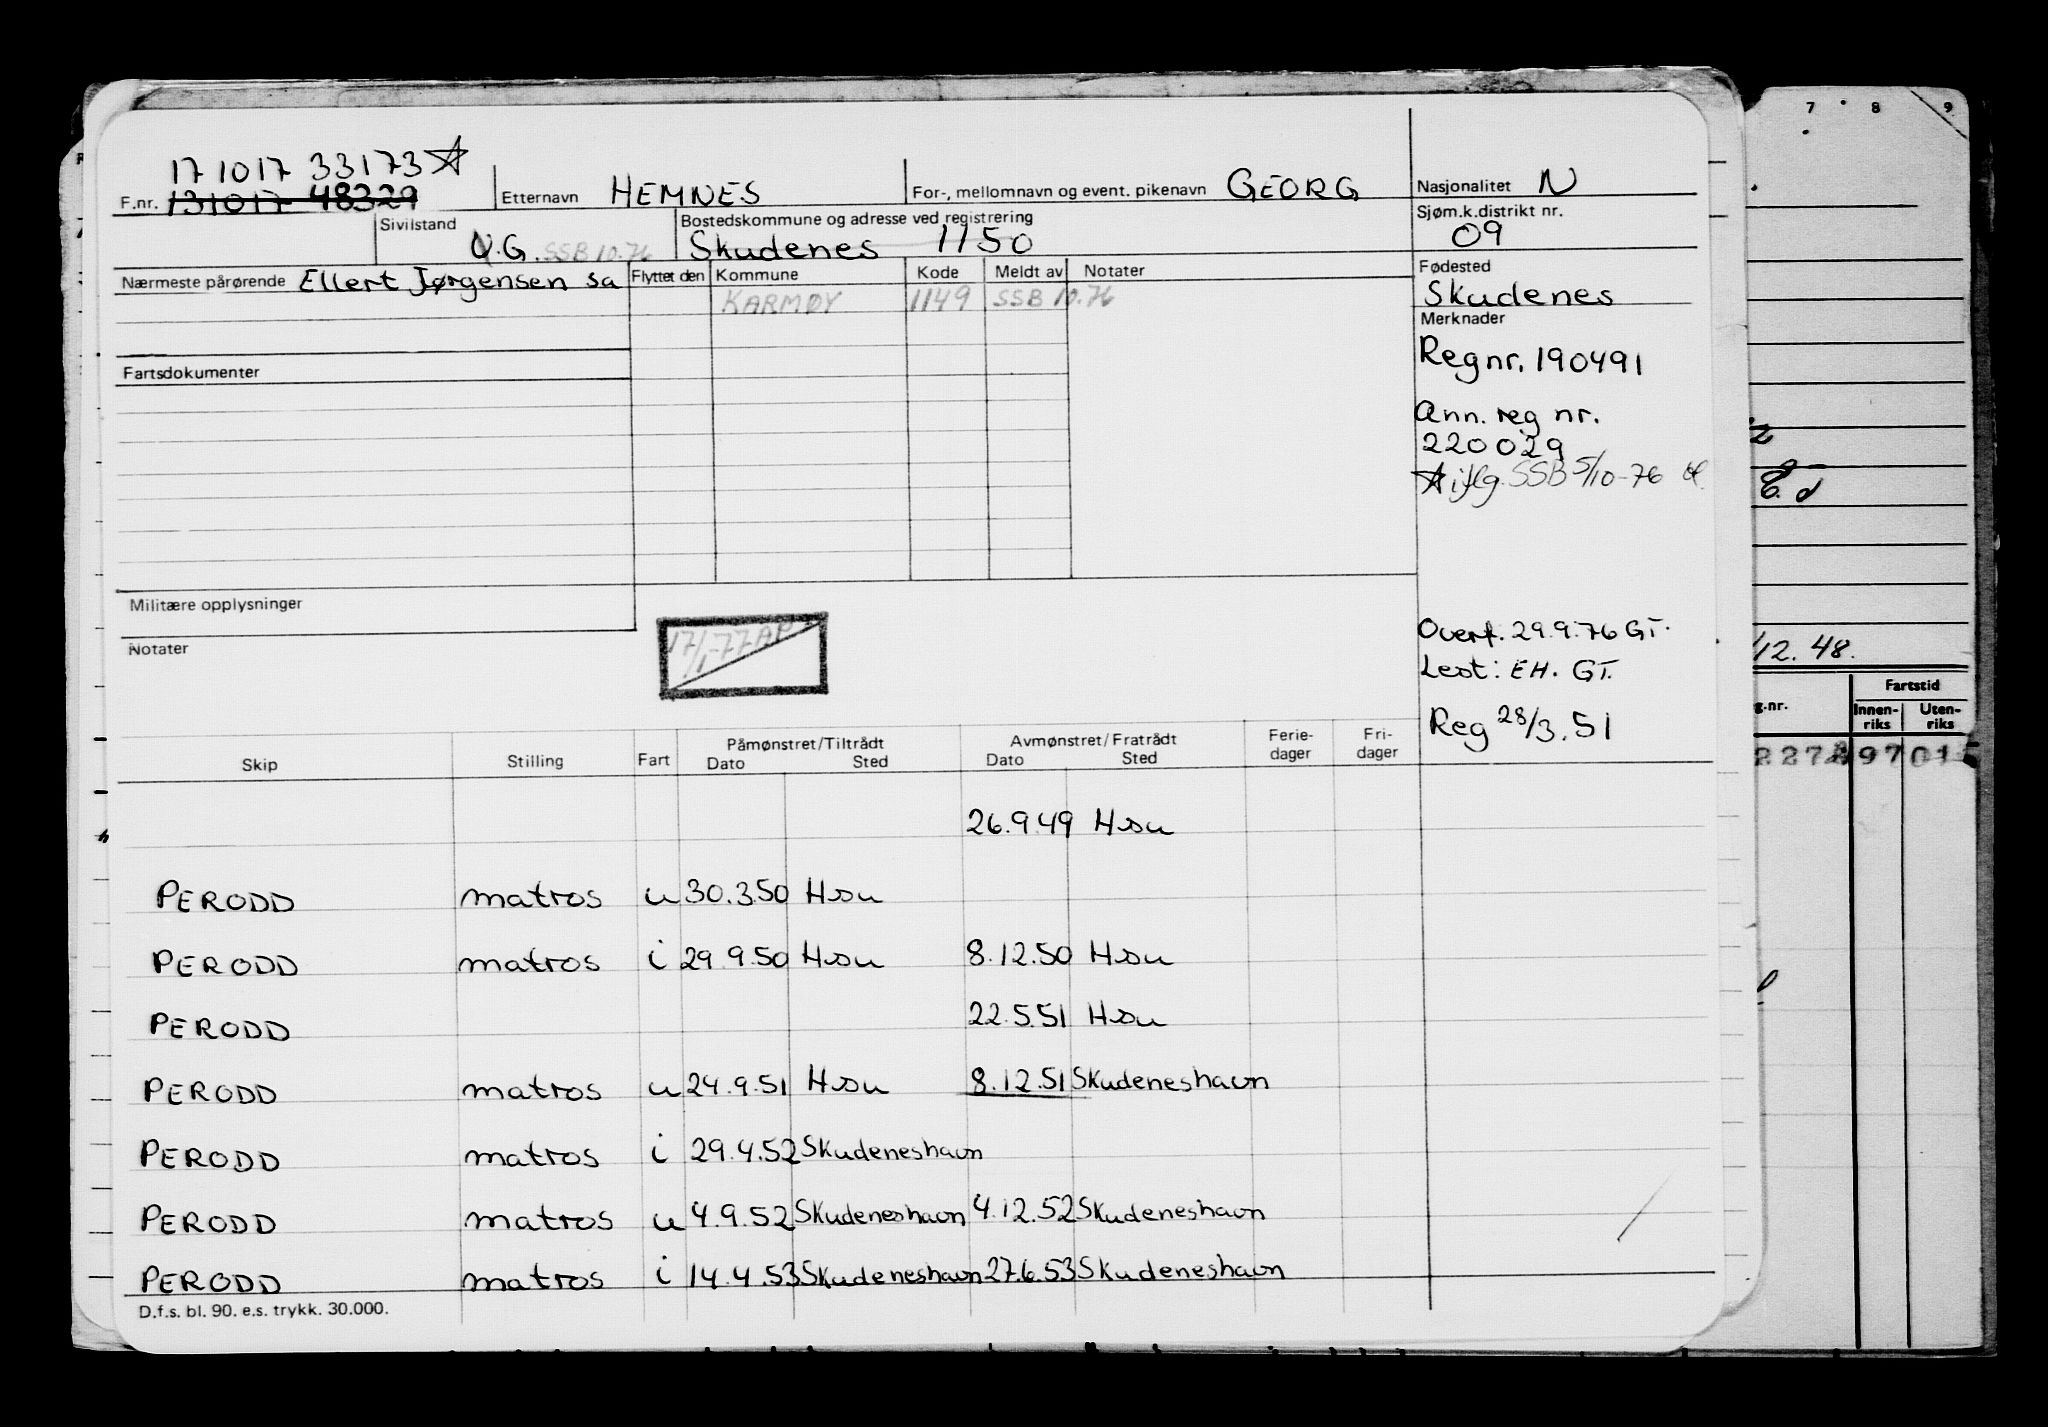 17 10 17 33173 ☆
F.nr. 131017 48329 Etternavn HEMNES For-, mellomnavn og event. pikenavn GEORG Nasjonalitet N
Sivilstand U.G. SSB 10.76 Bostedskommune og adresse ved registrering Skudenes 1150 Sjøm.k.distrikt nr. 09
Nærmeste pårørende Ellert Jørgensen sa Flyttet den Kommune Kode Meldt av Notater Fødested
KARMØY 1149 SSB 10.76 Skudenes
Merknader
Regnr. 190491
Fartsdokumenter
Ann. reg nr.
220029
☆ iflg. SSB 5/10-76
Militære opplysninger
Notater
17/1-77 AP
Overf. 29.9.76 GT.
Lest: EH. GT.
Reg 28/3.51
Skip Stilling Fart Påmønstret/Tiltrådt Dato Sted Avmønstret/Fratrådt Dato Sted Ferie-dager Fri-dager
26.9.49 Hsu
PERODD matros u 30.3.50 Hsu
PERODD matros i 29.9.50 Hsu 8.12.50 Hsu
PERODD 22.5.51 Hsu
PERODD matros u 24.9.51 Hsu 8.12.51 Skudeneshavn
PERODD matros i 29.4.52 Skudeneshavn
PERODD matros u 4.9.52 Skudeneshavn 4.12.52 Skudeneshavn
PERODD matros i 14.4.53 Skudeneshavn 27.6.53 Skudeneshavn
D.f.s. bl. 90. e.s. trykk. 30.000.
7 8 9
/12. 48.
Fartstid
g.nr. Innen-riks Uten-riks
97 01